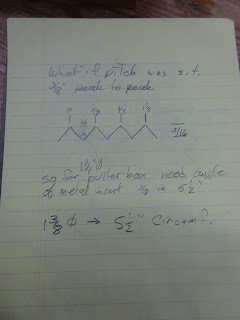 What if pitch was s.t.
3/8" peak to peak
0 3/8 6/8 1 1/8
3/16
1 3/4" Ø
So for puller box need angle
of metal insert 1/8 in 5 1/2"
1 3/8 Ø → 5 1/2" Circumf.